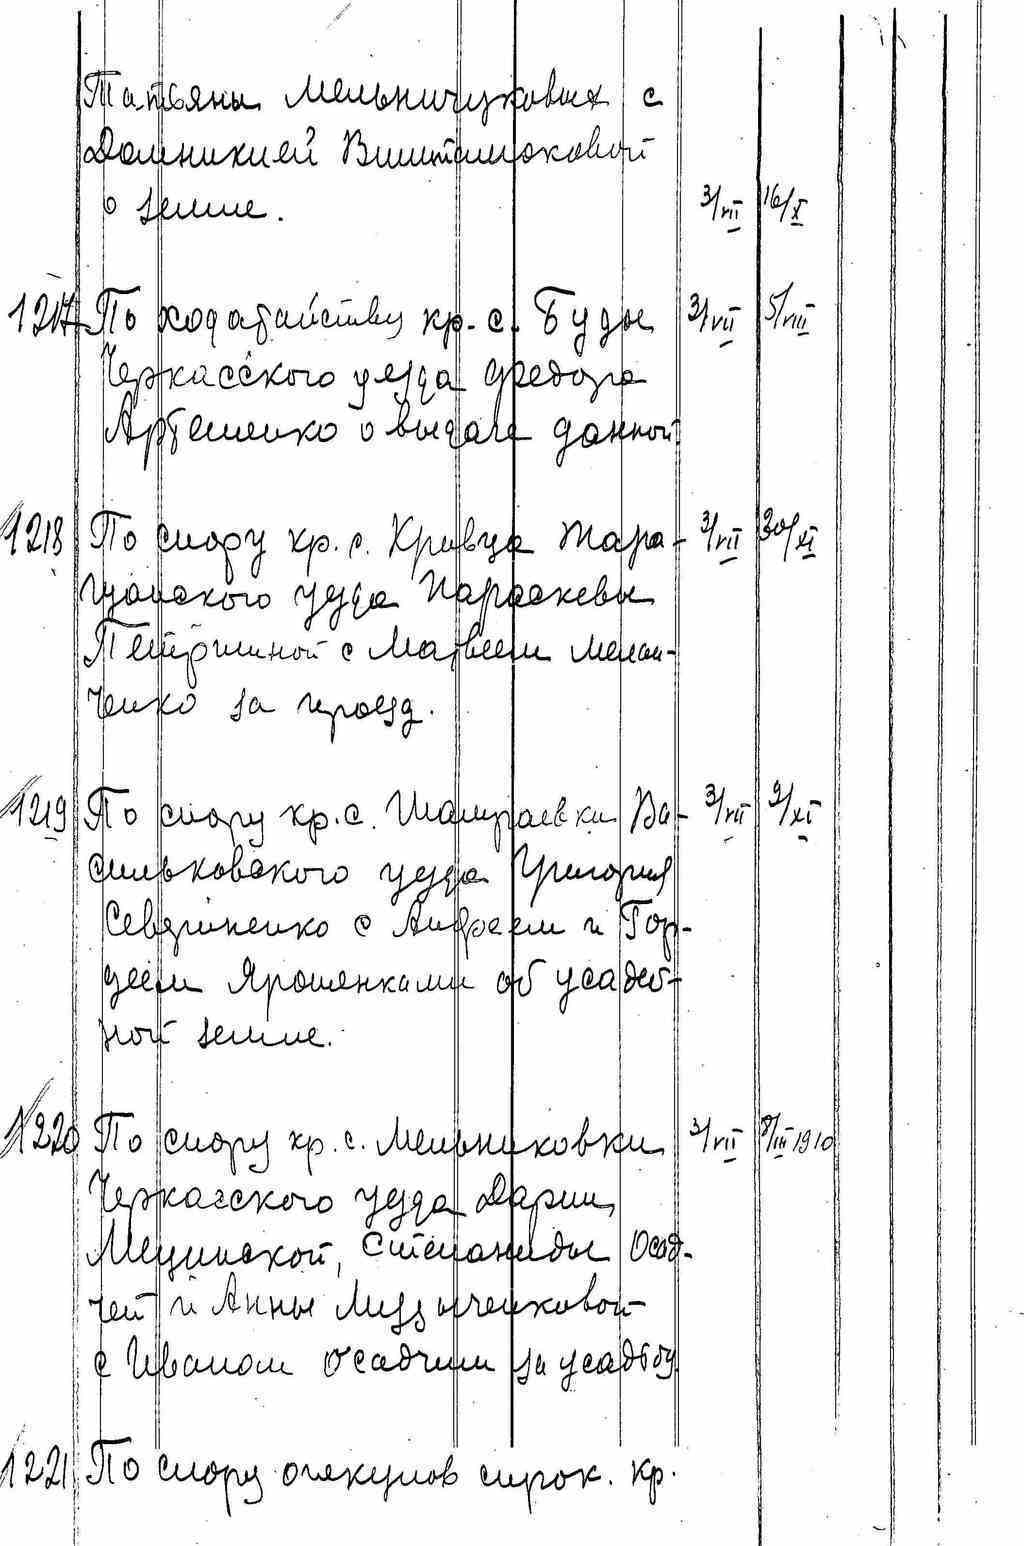 Татьяны Мельничуковых с
Домникией
о земле. 3/VII 16/X
1217 По ходатайству кр. с. Буды 3/VII 5/VIII
Черкасского уезда Федора
Артеменко о выдаче данной
1218 По спору кр. с. Кривца Тара- 3/VII 30/XI
щанского уезда Параскевы
с Матвеем Мелани-
ченко за проезд.
1219 По спору кр. с. Шамраевки Ва- 3/VII 9/XI
сильковского уезда Григория
с Андреем и Гор-
деем Ярошенками об усадеб-
ной земле.
1220 По спору кр. с. Мельниковки 3/VII 8/III 1910
Черкасского уезда Дарии
Степаниды Осад-
чей и Анны
с Иваном Осадчим за усадьбу
1221 По спору опекунов сирот. кр.